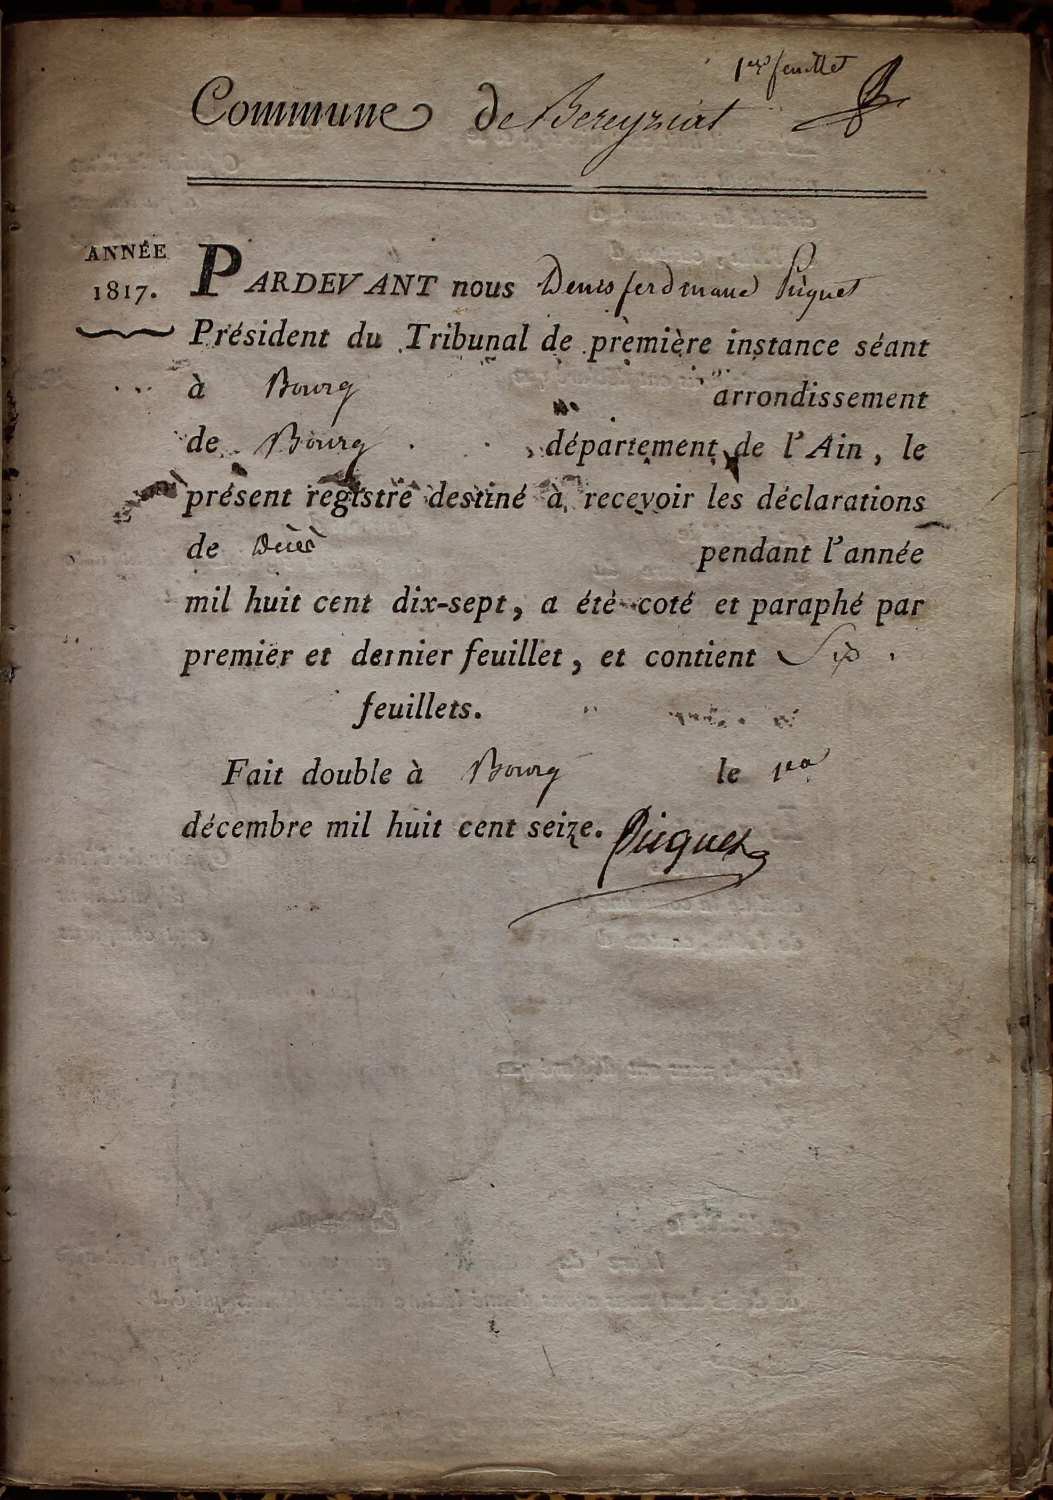 1er feuillet
Commune de Bereyziat
ANNÉE
1817.
PARDEVANT nous Denis ferdinand Piquet
Président du Tribunal de première instance séant
à Bourg arrondissement
de Bourg département de l'Ain, le
présent registre destiné à recevoir les déclarations
de Décès pendant l'année
mil huit cent dix-sept, a été coté et paraphé par
premier et dernier feuillet, et contient Six
feuillets.
Fait double à Bourg le 1er
décembre mil huit cent seize. Piquet